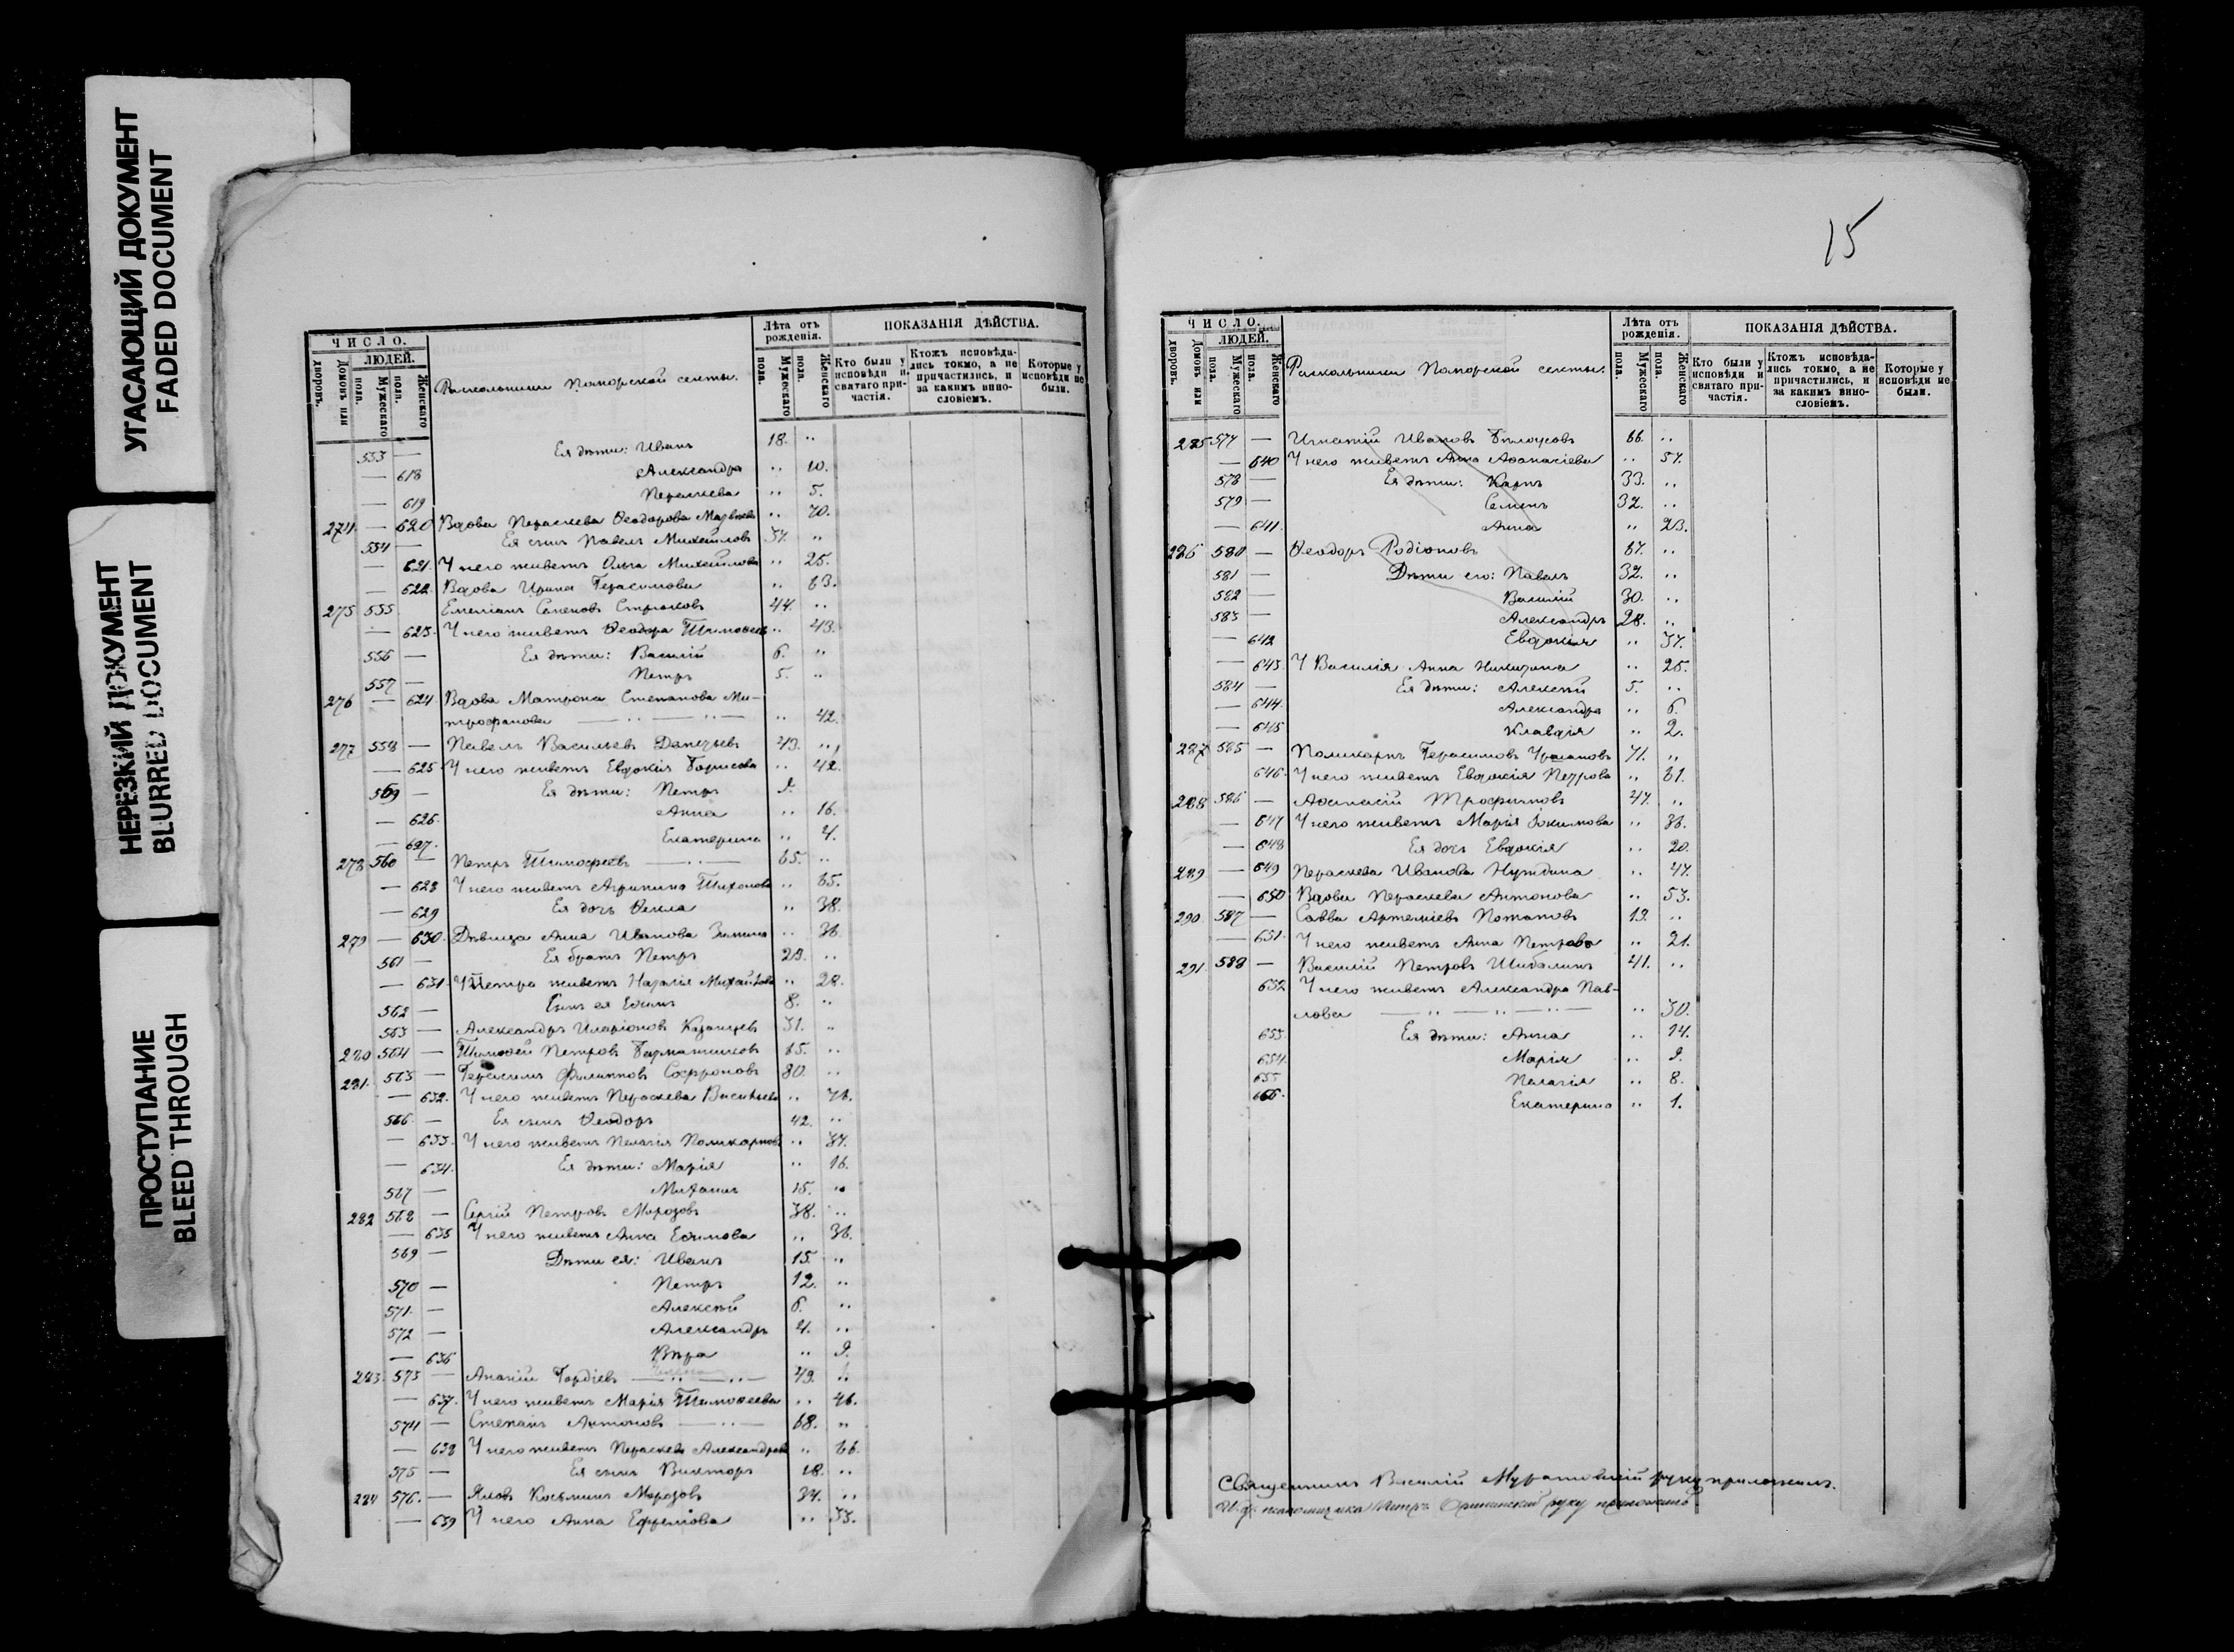 УГАСАЮЩИЙ ДОКУМЕНТ
FADED DOCUMENT
НЕРЕЗКИЙ ДОКУМЕНТ
BLURRED DOCUMENT
ПРОСТУПАНИЕ
BLEED THROUGH
ЧИСЛО.
ЛЮДЕЙ.
Домовъ или дворовъ.
Мужескаго пола.
Женскаго пола.
Раскольники Поморской секты.
Лѣта отъ рожденія.
Мужескаго пола.
Женскаго пола.
ПОКАЗАНІЯ ДѢЙСТВА.
Кто были у исповѣди и святаго причастія.
Ктожъ исповѣдались токмо, а не причастились, и за какимъ винословіемъ.
Которые у исповѣди не были.
553 — Ея дѣти: Иванъ 18. "
— 618 Александра " 10.
— 619 Параскева " 5.
274. — 620 Вдова Параскева Ѳеодорова " 70.
554 — Ея сынъ Павелъ Михайловъ 37. "
— 621. У него живетъ Ольга Михайлова " 25.
— 622. Вдова Ирина Герасимова " 63.
275 555. Емеліанъ Семеновъ Стрюковъ 44. "
— 623. У него живетъ Ѳеодора " 43.
556 — Ея дѣти: Василій 6. "
557 — Петръ 5. "
276 — 624. Вдова Матрона Степанова Ми-
трофанова — " — " — " 42.
277 558 — Павелъ Васильевъ 43. "
— 625 У него живетъ Евдокія Борисова " 42.
569 — Ея дѣти: Петръ 9.
— 626. Анна " 16.
— 627. Екатерина " 4.
278 560 — Петръ Тимофеевъ — " — 65. "
— 628 У него живетъ Агрипина Тихонова " 65.
— 629 Ея дочь Ѳекла " 38.
279 — 630. Дѣвица Анна Иванова Зимина " 36.
561 — Ея братъ Петръ 29. "
— 631. У Петра живетъ Наталія Михайлова " 28.
562 — Сынъ ея Ефимъ 8. "
563 — Александръ Иларіоновъ Казанцевъ 31. "
280 564 — Тимоѳей Петровъ 65. "
281. 565 — Герасимъ Филипповъ Софроновъ 80. "
— 632. У него живетъ Параскева Васильева " 76.
566. — Ея сынъ Ѳеодоръ 42. "
— 633. У него живетъ Пелагія Поликарпова " 37.
— 634. Ея дѣти: Марія " 16.
567 — Михаилъ 15. "
282 568 — Сергій Петровъ Морозовъ 38. "
— 635 У него живетъ Анна Ефимова " 36.
569 — Дѣти ея: Иванъ 15. "
570 — Петръ 12. "
571. — Алексѣй 6. "
572 — Александръ 4. "
— 636 Вѣра " 9.
283. 573 — Ананій Гордіевъ — " — 49. "
— 637. У него живетъ Марія Тимоѳеева " 46.
574 — Степанъ Антоновъ — " — 68. "
— 638 У него живетъ Параскева Александрова " 66.
575 — Ея сынъ Викторъ 18. "
284 576. — Яковъ Косьминъ Морозовъ 34. "
— 639 У него Анна Ефремова " 33.
15
ЧИСЛО.
ЛЮДЕЙ.
Домовъ или дворовъ.
Мужескаго пола.
Женскаго пола.
Раскольники Поморской секты.
Лѣта отъ рожденія.
Мужескаго пола.
Женскаго пола.
ПОКАЗАНІЯ ДѢЙСТВА.
Кто были у исповѣди и святаго причастія.
Ктожъ исповѣдались токмо, а не причастились, и за какимъ винословіемъ.
Которые у исповѣди не были.
285 577 — Игнатій Ивановъ Бѣлоусовъ 66. "
— 640 У него живетъ Анна Аѳанасіева " 57.
578 — Ея дѣти: Карпъ 33. "
579 — Семенъ 32. "
— 641. Анна " 23.
286 580 — Ѳеодоръ Родіоновъ 67. "
581 — Дѣти его: Павелъ 32. "
582 — Василій 30. "
583 — Александръ 28. "
— 642 Евдокія " 37.
— 643. У Василія Анна Никитина " 25.
584 — Ея дѣти: Алексѣй 5. "
— 644. Александра " 6.
— 645 Клавдія " 2.
287 585 — Поликарпъ Герасимовъ 71. "
646. У него живетъ Евдокія Петрова " 61.
288 586 — Аѳанасій Трофимовъ 47. "
— 647 У него живетъ Марія Іокимова " 36.
— 648 Ея дочь Евдокія " 20.
289 — 649 Параскева Иванова Нуждина " 47.
— 650 Вдова Параскева Антонова " 53.
290 587 — Савва Артеміевъ Потаповъ 19. "
— 651. У него живетъ Анна Петрова " 21.
291. 588 — Василій Петровъ Шибалинъ 41. "
652 У него живетъ Александра Пав-
лова — " — " — " — " 30.
653. Ея дѣти: Анна " 14.
654. Марія " 9.
655 Пелагія " 8.
656. Екатерина " 1.
Священникъ Василій руку приложилъ.
И. д. псаломщика Петръ руку приложилъ